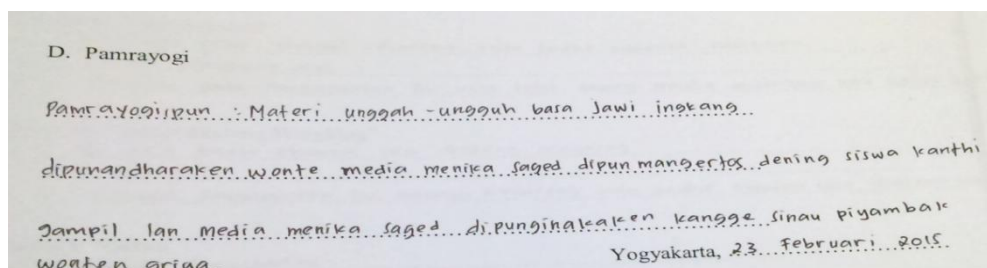 D. Pamrayogi
Pamrayogijpun : Materi unggah-ungguh basa Jawi ingkang
dipunandharaken wonte media menika saged dipun mangertos dening siswa kanthi
gampil lan media menika saged dipunginakaken kangge sinau piyambak
wonten griya
Yogyakarta, 23 Februari 2015